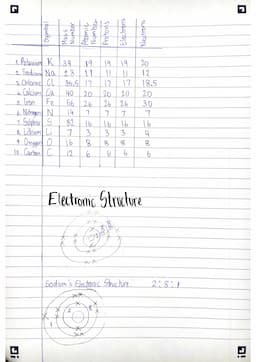 Symbol Mass Number Atomic Number Protons Electrons Neutrons
1. Potassium K 39 19 19 19 20
2. Sodium Na 23 11 11 11 12
3. Chlorine Cl 35.5 17 17 17 18.5
4. Calcium Ca 40 20 20 20 20
5. Iron Fe 56 26 26 26 30
6. Nitrogen N 14 7 7 7 7
7. Sulphur S 32 16 16 16 16
8. Lithium Li 7 3 3 3 4
9. Oxygen O 16 8 8 8 8
10. Carbon C 12 6 6 6 6
Electronic Structure
Sodium's Electronic Structure 2:8:1